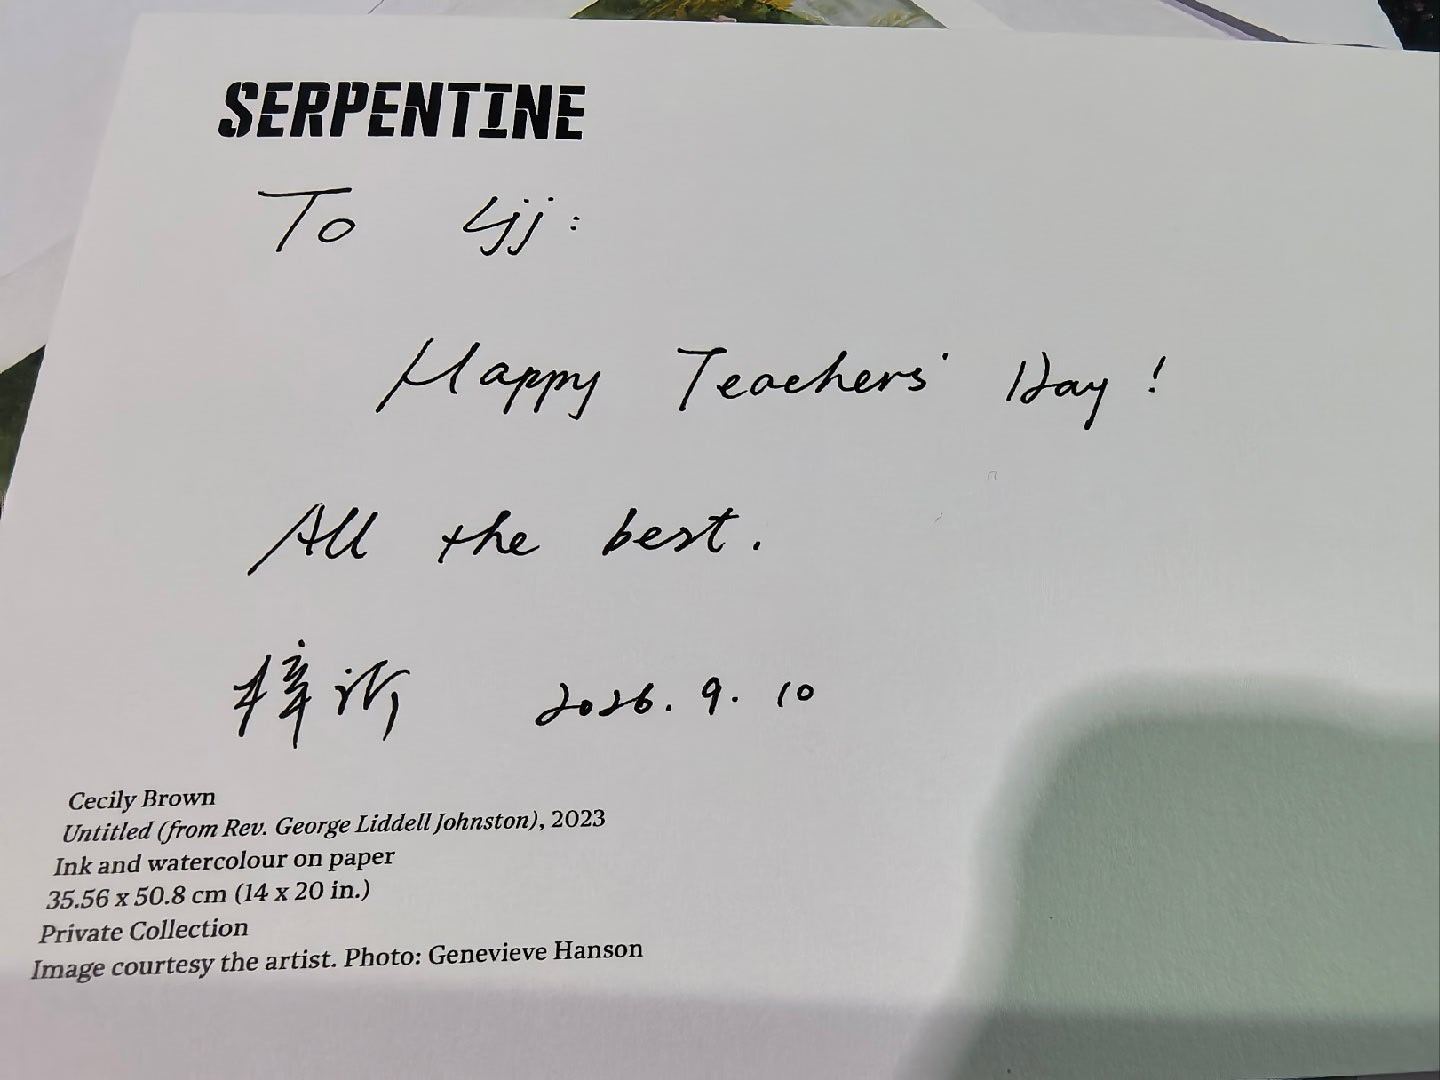 SERPENTINE
To Ljj:
Happy Teachers' Day!
All the best.
梓沂 2026.9.10
Cecily Brown
Untitled (from Rev. George Liddell Johnston), 2023
Ink and watercolour on paper
35.56 x 50.8 cm (14 x 20 in.)
Private Collection
Image courtesy the artist. Photo: Genevieve Hanson